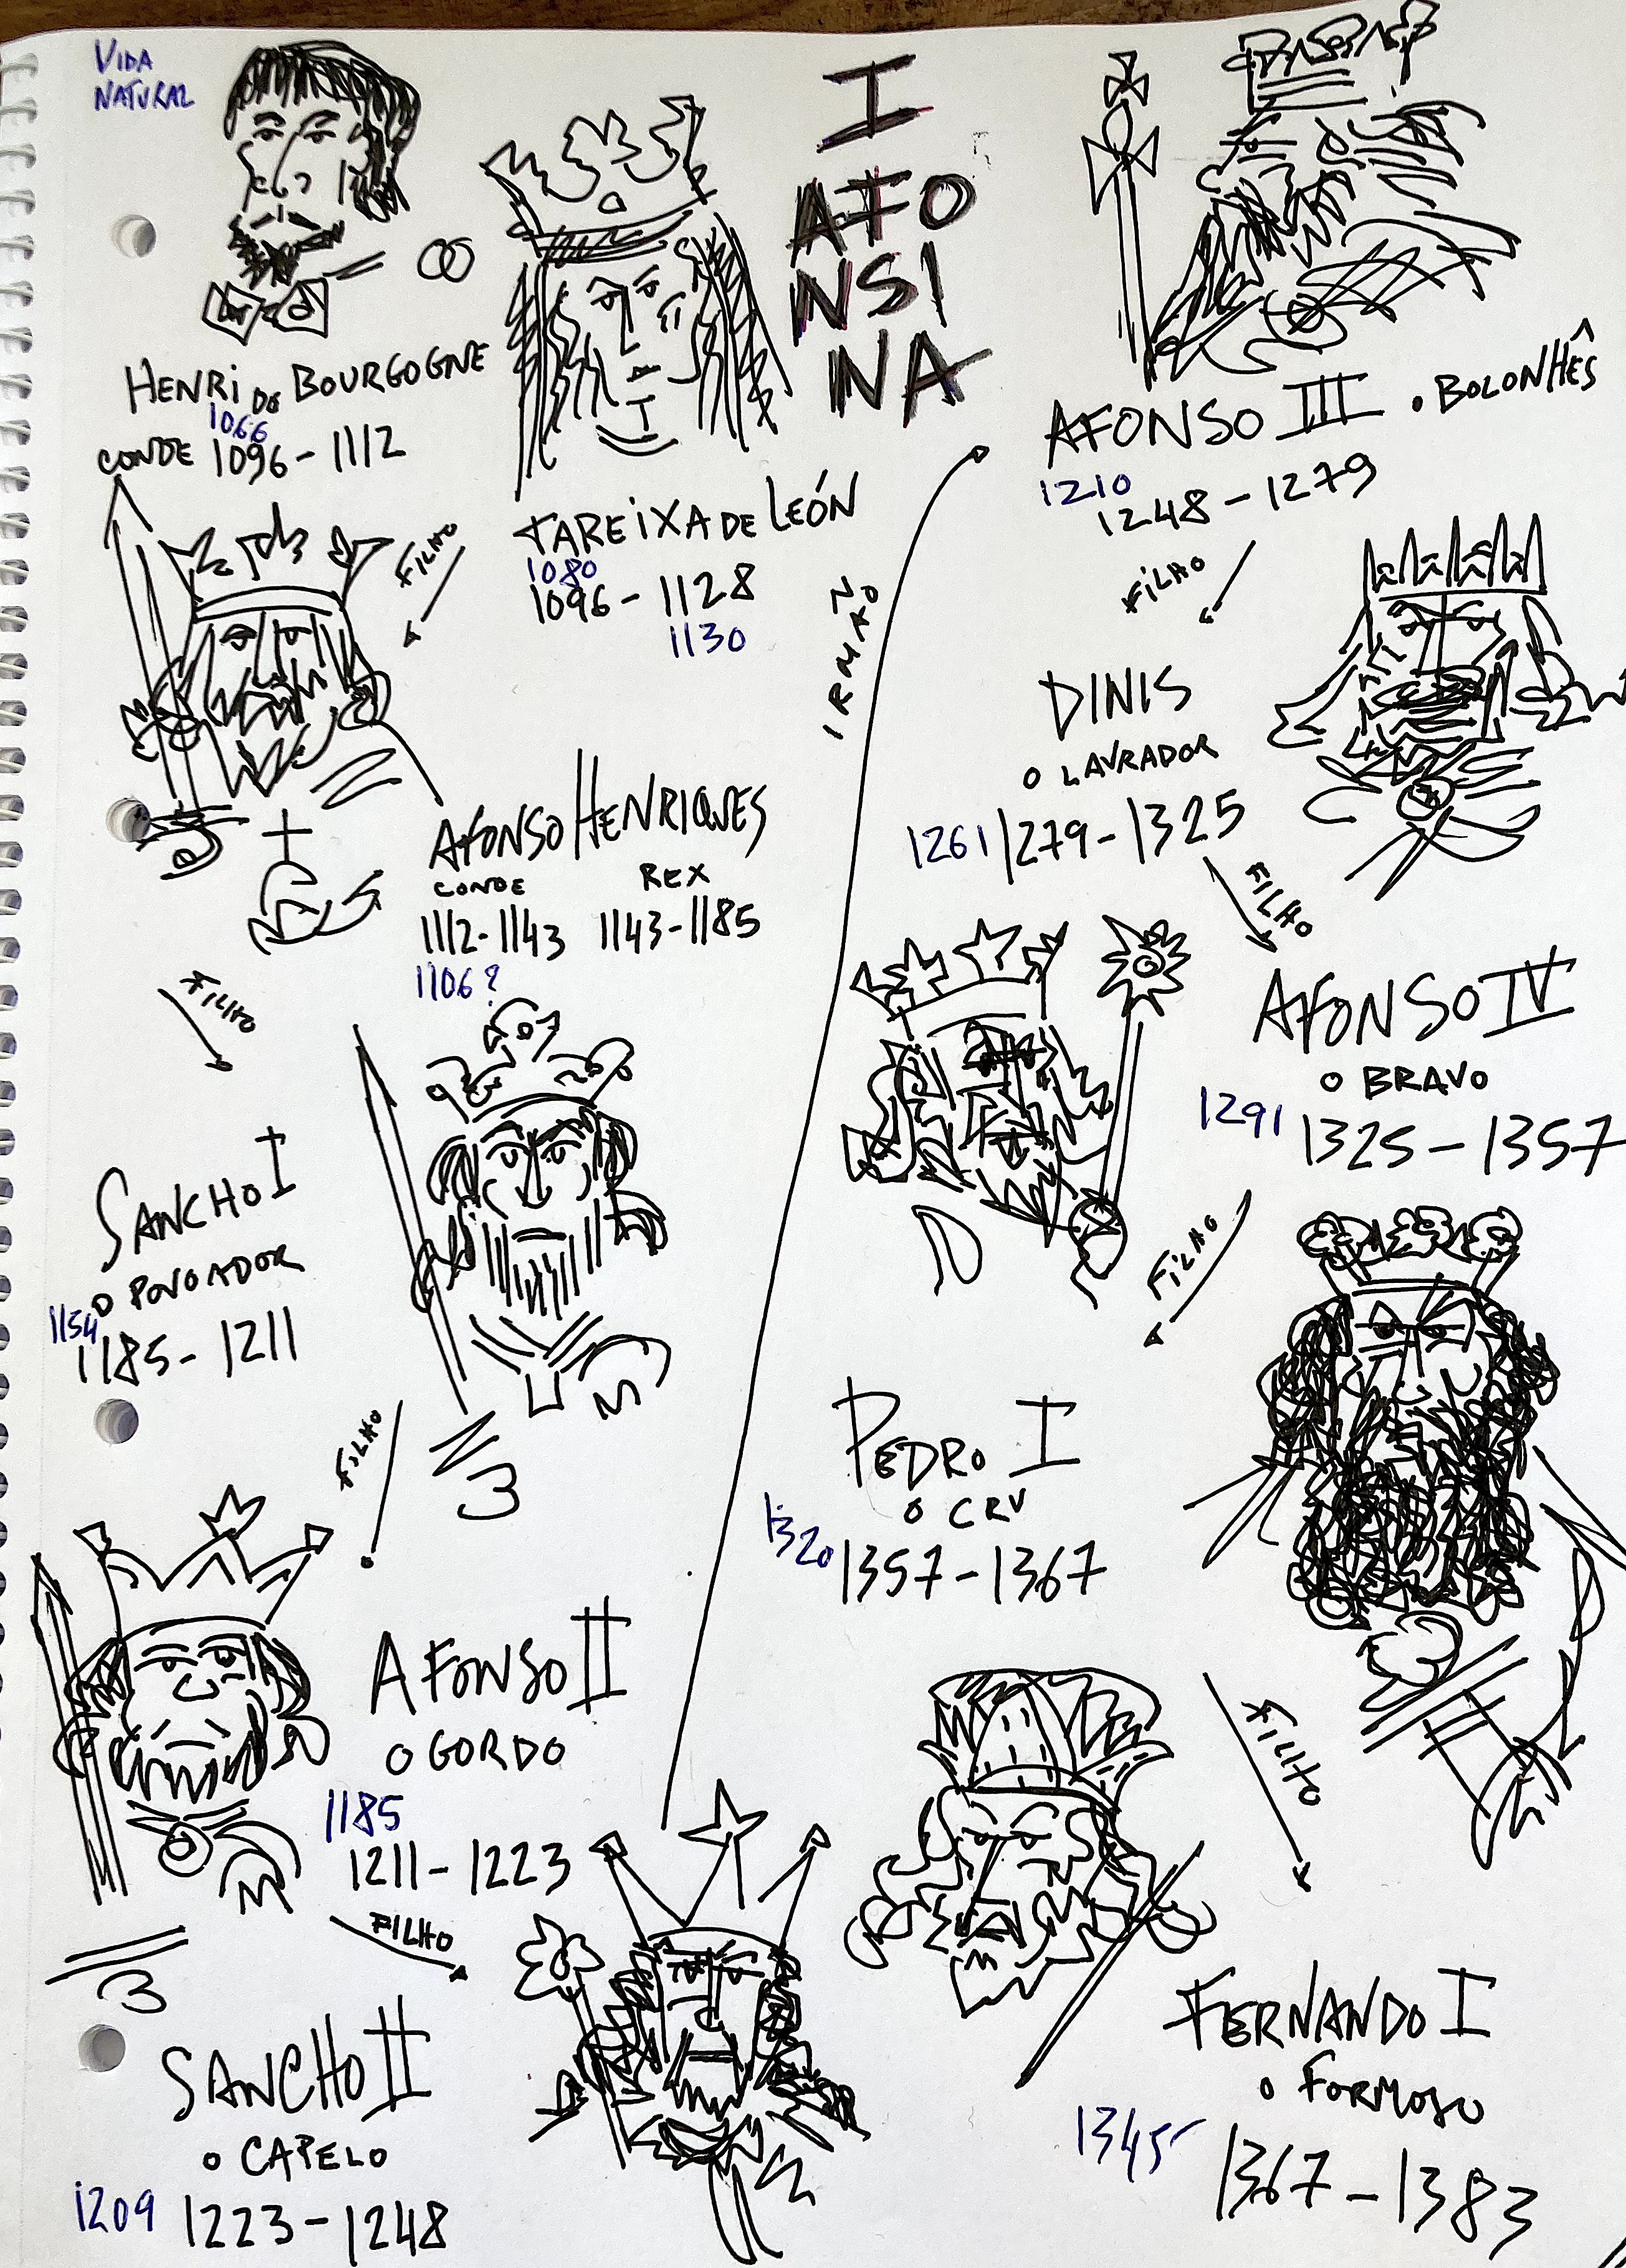 VIDA
NATURAL
HENRI DE BOURGOGNE
1066
CONDE 1096 - 1112
TAREIXA DE LEÓN
1080
1096 - 1128
1130
I
AFO
NSI
NA
FILHO
AFONSO HENRIQUES
CONDE REX
1112 - 1143 1143 - 1185
1106?
FILHO
SANCHO I
O POVOADOR
1154
1185 - 1211
FILHO
AFONSO II
O GORDO
1185
1211 - 1223
FILHO
SANCHO II
O CAPELO
1209 1223 - 1248
IRMÃO
AFONSO III O BOLONHÊS
1210
1248 - 1279
FILHO
DINIS
O LAVRADOR
1261 1279 - 1325
FILHO
AFONSO IV
O BRAVO
1291
1325 - 1357
FILHO
PEDRO I
O CRU
1320 1357 - 1367
FILHO
FERNANDO I
O FORMOSO
1345
1367 - 1383